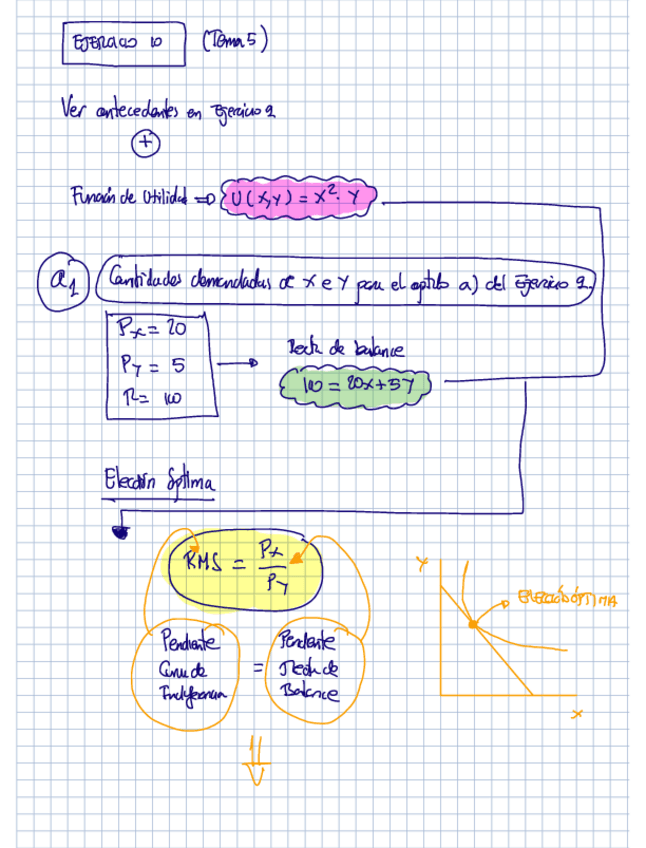 EJERCICIO 10 (Tema 5)
Ver antecedentes en Ejercicio 2
+
Función de Utilidad => U(X,Y) = X². Y
a₁ Cantidades demandadas de X e Y para el aptdo a) del Ejercicio 2.
Px = 20
PY = 5
R = 100
Recta de balance
100 = 20X + 5Y
Elección óptima
RMS = Px / PY
Pendiente Curva de Indiferencia = Pendiente Recta de Balance
Y
ELECCIÓN ÓPTIMA
X